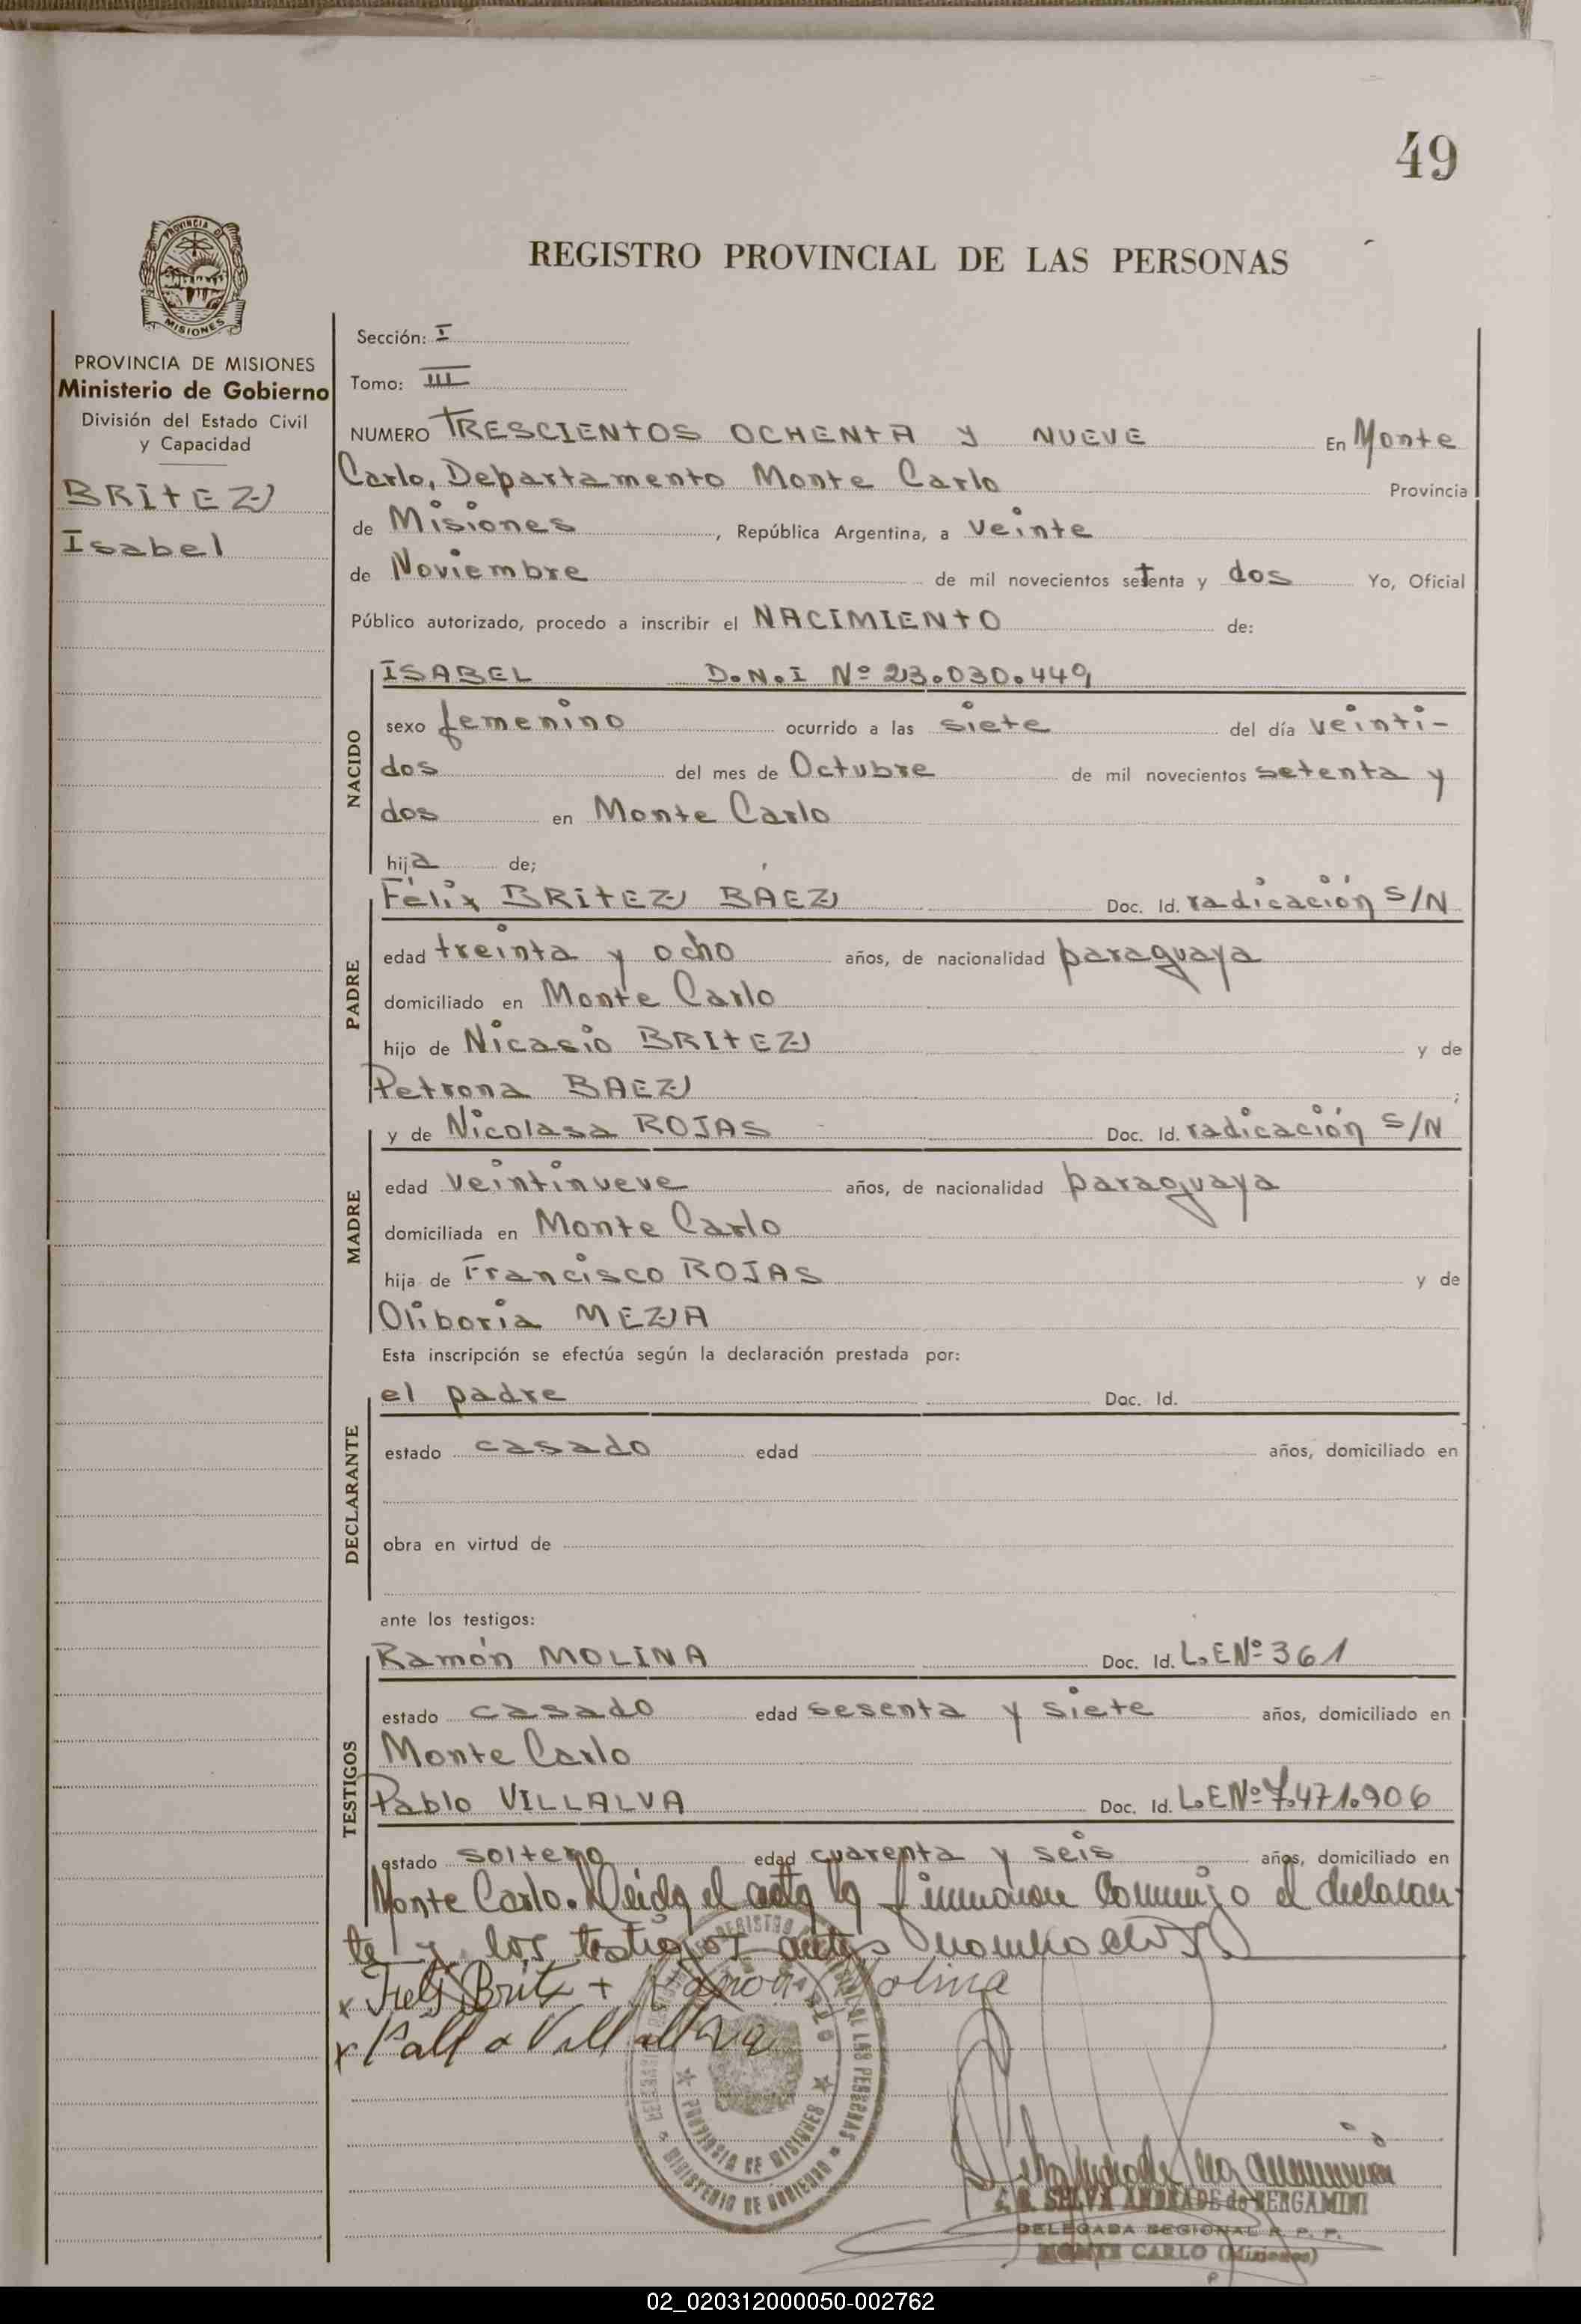 49
REGISTRO PROVINCIAL DE LAS PERSONAS
PROVINCIA DE MISIONES
Ministerio de Gobierno
División del Estado Civil
y Capacidad
BRITEZ
Isabel
Sección: I
Tomo: III
NUMERO TRESCIENTOS OCHENTA Y NUEVE En Monte
Carlo, Departamento Monte Carlo Provincia
de Misiones, República Argentina, a veinte
de Noviembre de mil novecientos setenta y dos Yo, Oficial
Público autorizado, procedo a inscribir el NACIMIENTO de:
NACIDO
ISABEL D.N.I Nº 23.030.449
sexo femenino ocurrido a las siete del día veinti-
dos del mes de Octubre de mil novecientos setenta y
dos en Monte Carlo
hija de;
PADRE
Félix BRITEZ BÁEZ Doc. Id. radicación S/N
edad treinta y ocho años, de nacionalidad paraguaya
domiciliado en Monte Carlo
hijo de Nicasio BRITEZ y de
Petrona BAEZ ;
MADRE
y de Nicolasa ROJAS Doc. Id. radicación S/N
edad veintinueve años, de nacionalidad paraguaya
domiciliada en Monte Carlo
hija de Francisco ROJAS y de
Oliboria MEZA
Esta inscripción se efectúa según la declaración prestada por:
DECLARANTE
el padre Doc. Id.
estado casado edad años, domiciliado en
obra en virtud de
ante los testigos:
TESTIGOS
Ramón MOLINA Doc. Id. L.E Nº 361
estado casado edad sesenta y siete años, domiciliado en
Monte Carlo
Pablo VILLALVA Doc. Id. L.E Nº 7.471.906
estado soltero edad cuarenta y seis años, domiciliado en
Monte Carlo. Leida el acta la firmaron conmigo el declaran-
te y los testigos antes nombrados
x Britz + Ramon Molina
x Villalva
MINISTERIO DE GOBIERNO
PROVINCIA DE MISIONES
SELVA ANDRADE de BERGAMINI
DELEGADA REGIONAL R. P. P.
MONTE CARLO (Misiones)
02_020312000050-002762